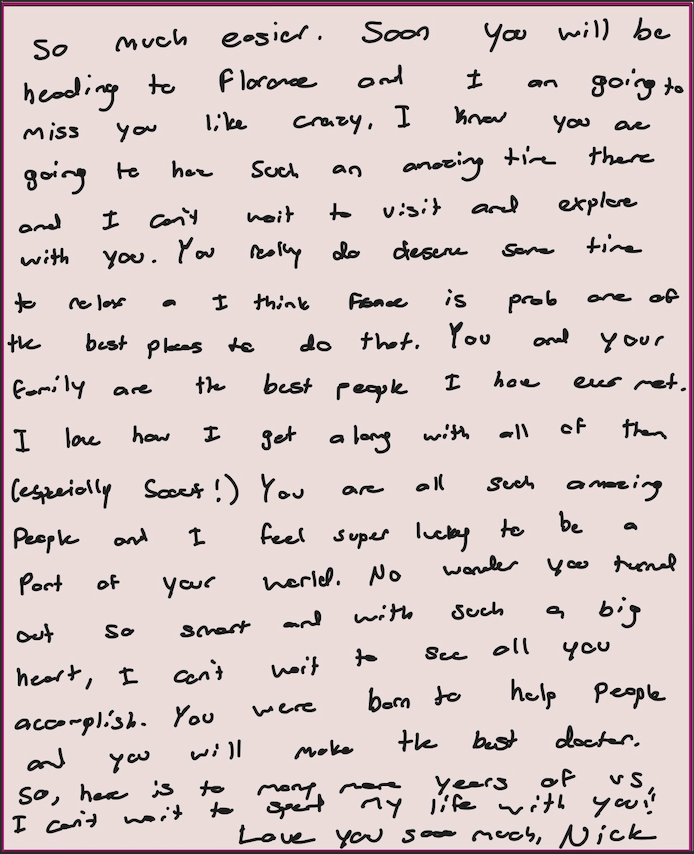 So much easier. Soon you will be
heading to Florence and I am going to
miss you like crazy. I know you are
going to have such an amazing time there
and I can't wait to visit and explore
with you. You really do deserve some time
to relax a I think France is prob one of
the best places to do that. You and your
family are the best people I have ever met.
I love how I get along with all of them
(especially Scout!) You are all such amazing
People and I feel super lucky to be a
Part of your world. No wonder you turned
out so smart and with such a big
heart, I can't wait to see all you
accomplish. You were born to help People
and you will make the best doctor.
So, here is to many more years of us,
I can't wait to spent my life with you!!
Love you sooo much, Nick